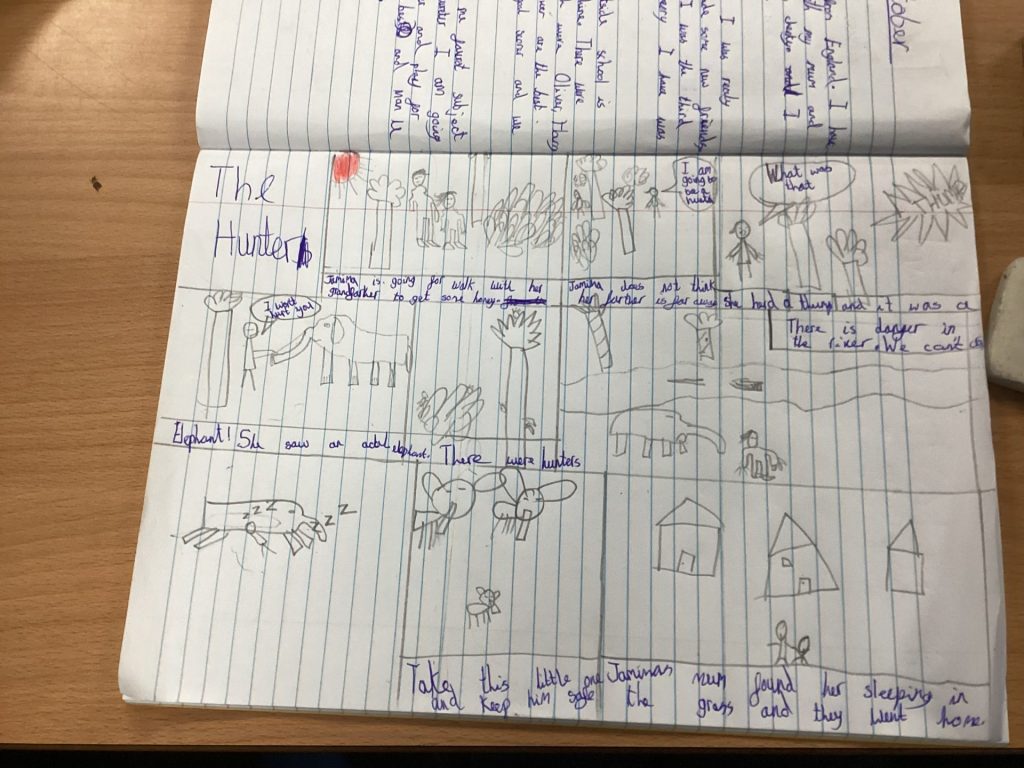 ober
on England. I have
my mum and
I
I was ready
de some new friends,
I was the third
I have was
side school is
There were
more Oliver, Harry
are the best.
and we
subject
I am going
and play for
and man U
The
Hunter
I am
going to
be a
hunter
What was
that
THUMP
Jamina is going for walk with her
grangfarther to get some honey.
Jamina does not think
her farther is far away
She herd a thump and it was a
I wont
hurt you
There is danger in
the river. We cant
Elephant! She saw an actul elephant.
There were hunters
z z z z z z
Take this little one
and keep him safe
Jaminas mum found her sleeping in
the grass and they went home